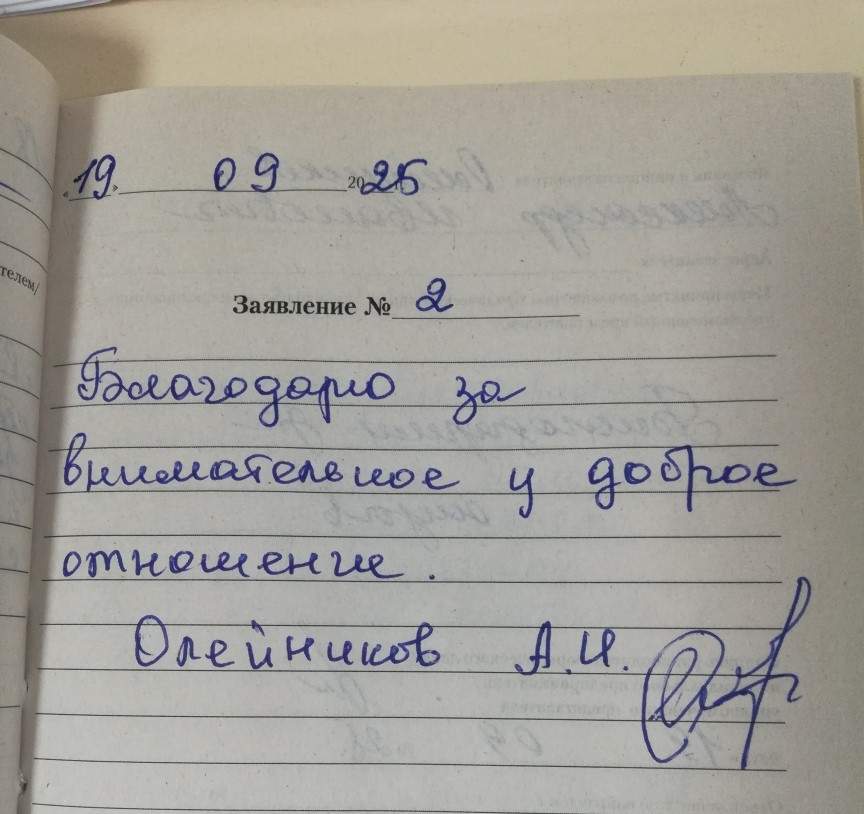 «19» 09 2025
Заявление № 2
Благодарю за
внимательное и доброе
отношение.
Олейников А.И.
телем/